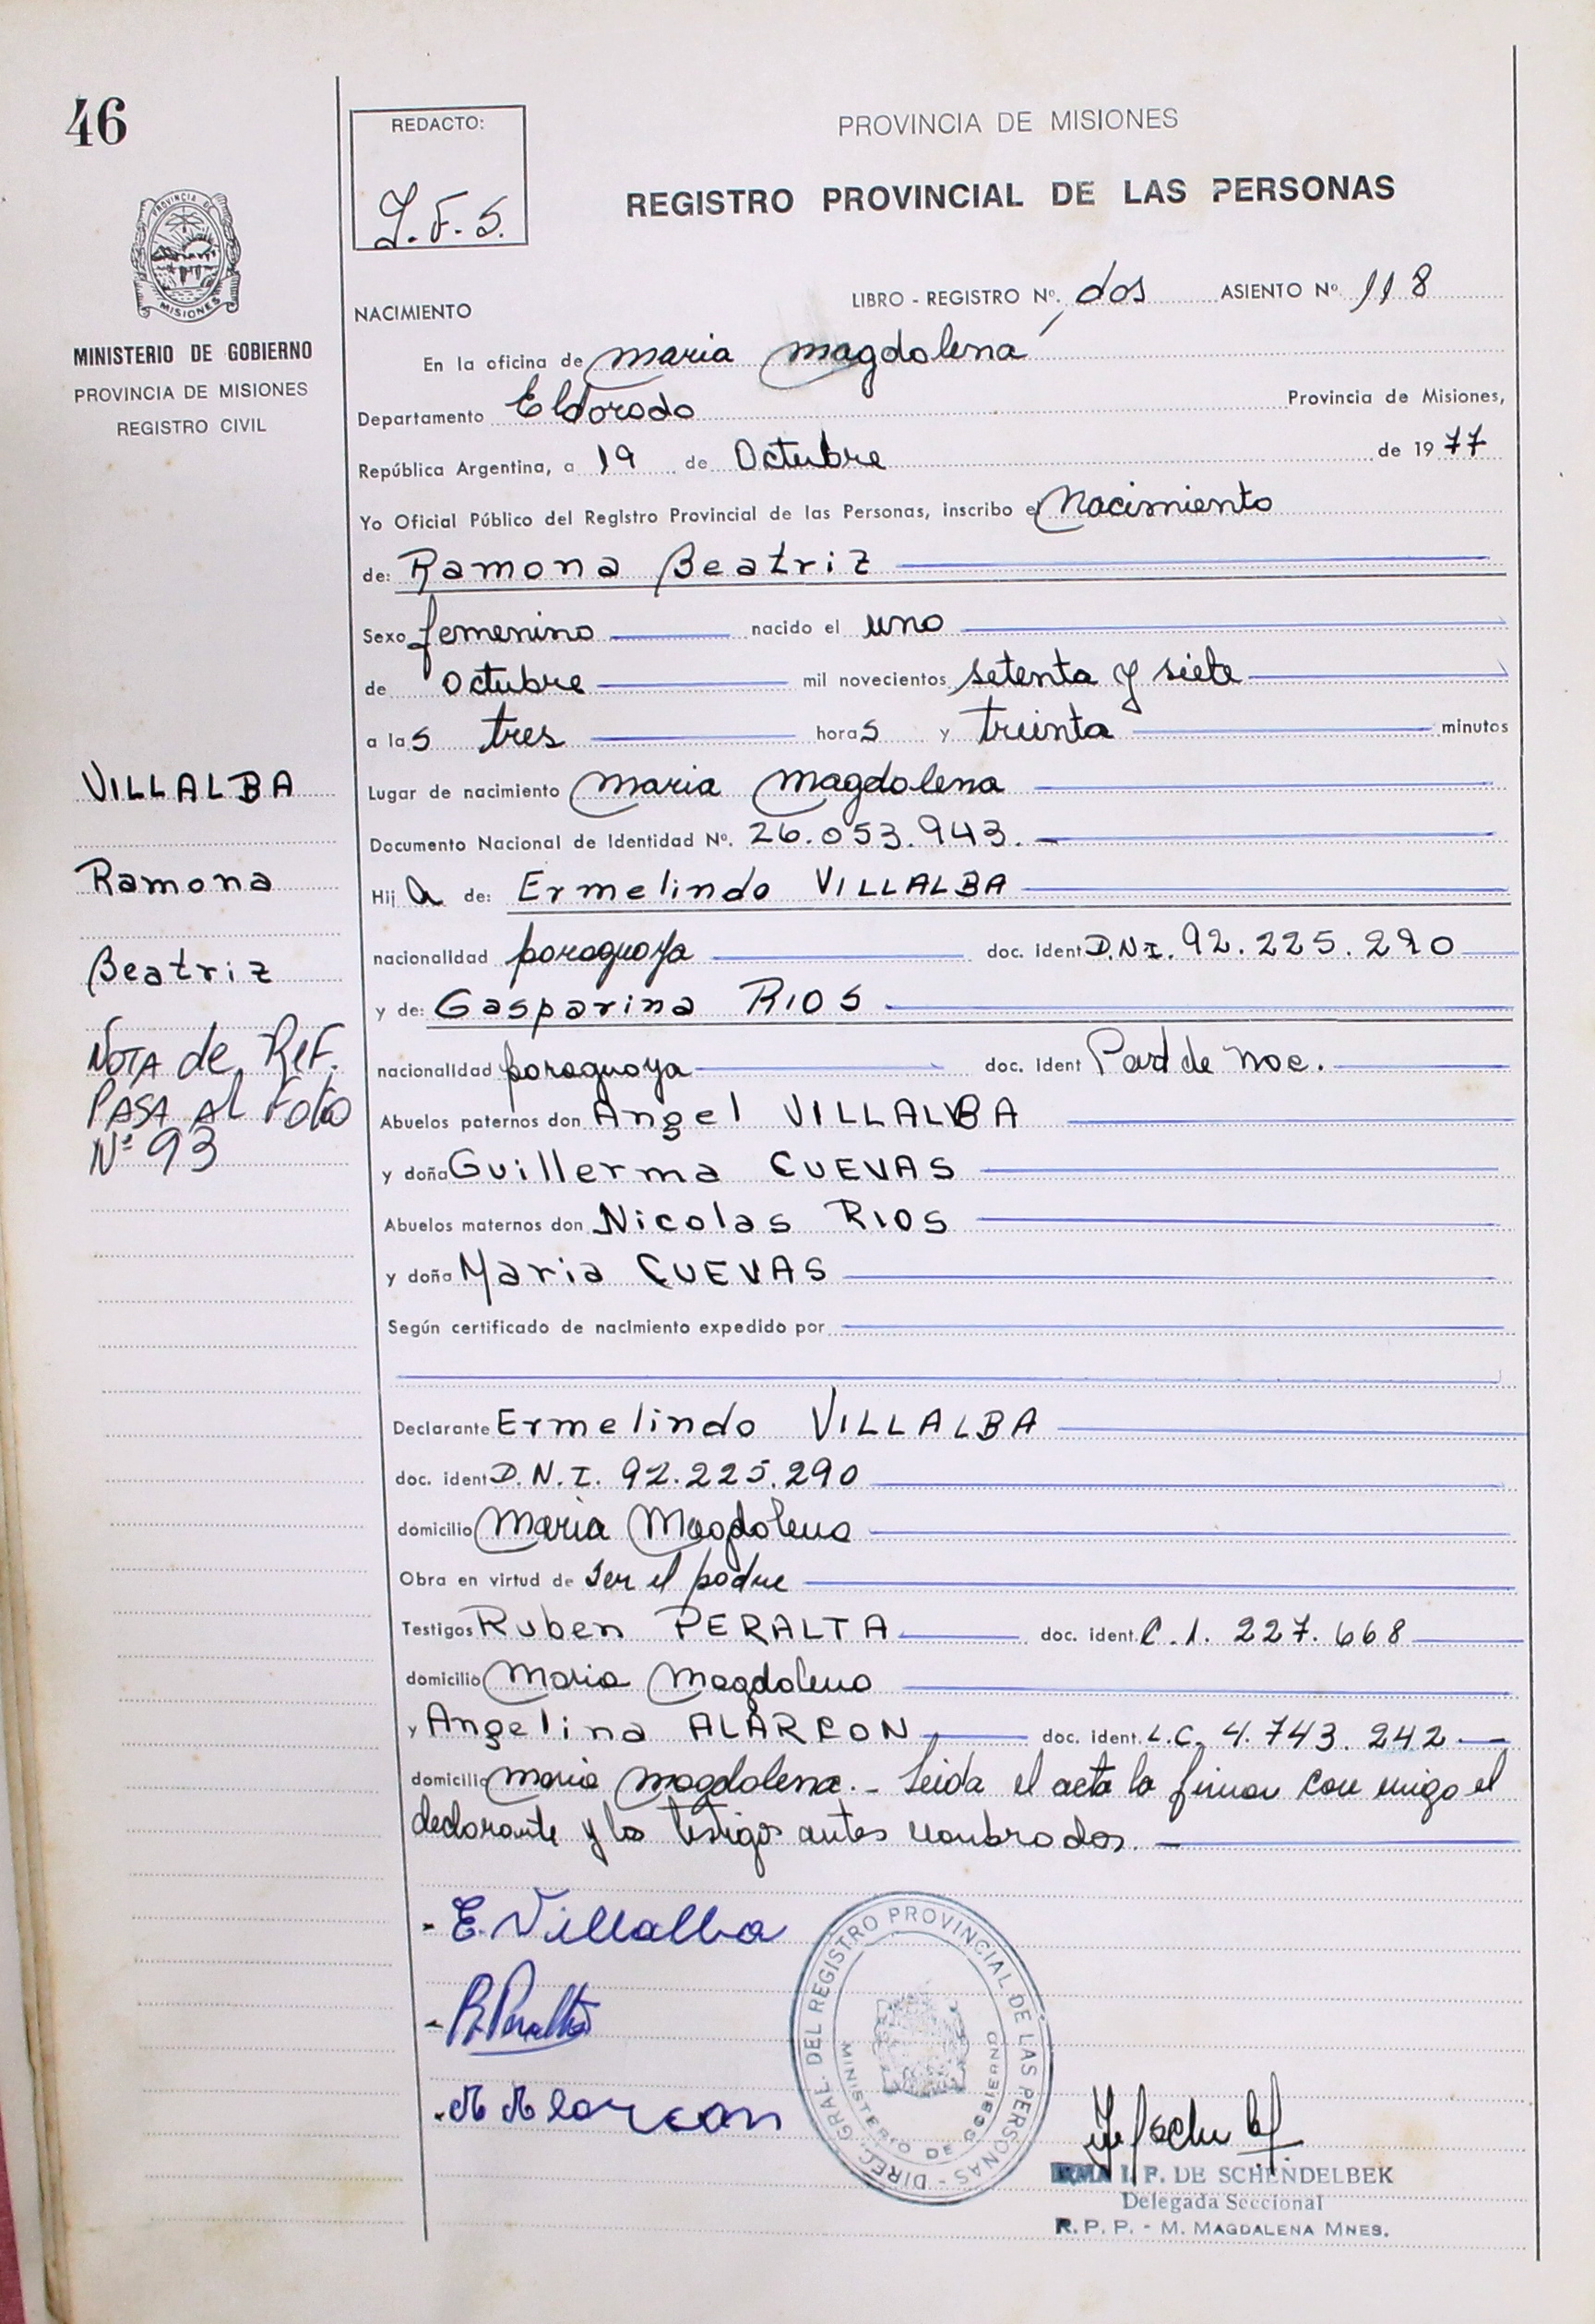 46
REDACTO:
I. F. S.
PROVINCIA DE MISIONES
REGISTRO PROVINCIAL DE LAS PERSONAS
PROVINCIA DE
MISIONES
MINISTERIO DE GOBIERNO
PROVINCIA DE MISIONES
REGISTRO CIVIL
NACIMIENTO
LIBRO - REGISTRO Nº. dos ASIENTO Nº 118
En la oficina de maria magdalena
Departamento Eldorado Provincia de Misiones,
República Argentina, a 19 de Octubre de 1977
Yo Oficial Público del Registro Provincial de las Personas, inscribo el Nacimiento
de: Ramona Beatriz
Sexo femenino nacido el uno
de octubre mil novecientos setenta y siete
a las tres horas y treinta minutos
Lugar de nacimiento maria magdalena
Documento Nacional de Identidad Nº. 26.053.943.
Hija de: Ermelindo VILLALBA
nacionalidad paraguaya doc. ident D.N.I. 92.225.290
y de: Gasparina RIOS
nacionalidad paraguaya doc. ident Part de Nac.
Abuelos paternos don Angel VILLALBA
y doña Guillerma CUEVAS
Abuelos maternos don Nicolas RIOS
y doña Maria CUEVAS
Según certificado de nacimiento expedido por
Declarante Ermelindo VILLALBA
doc. ident D.N.I. 92.225.290
domicilio Maria Magdalena
Obra en virtud de ser el padre
Testigos Ruben PERALTA doc. ident. C.I. 227.668
domicilio Maria Magdalena
y Angelina ALARCON doc. ident. L.C. 4.743.242
domicilio maria magdalena. - Leida el acta la firman con migo el
declarante y los testigos antes nombrados.
VILLALBA
Ramona
Beatriz
NOTA de REF.
PASA Al Folio
Nº 93
E. Villalba
R. Peralta
A Alarcon
DIREC. GRAL. DEL REGISTRO PROVINCIAL DE LAS PERSONAS -
MINISTERIO DE GOBIERNO
IRMA I. F. DE SCHENDELBEK
Delegada Seccional
R. P. P. - M. MAGDALENA MNES.